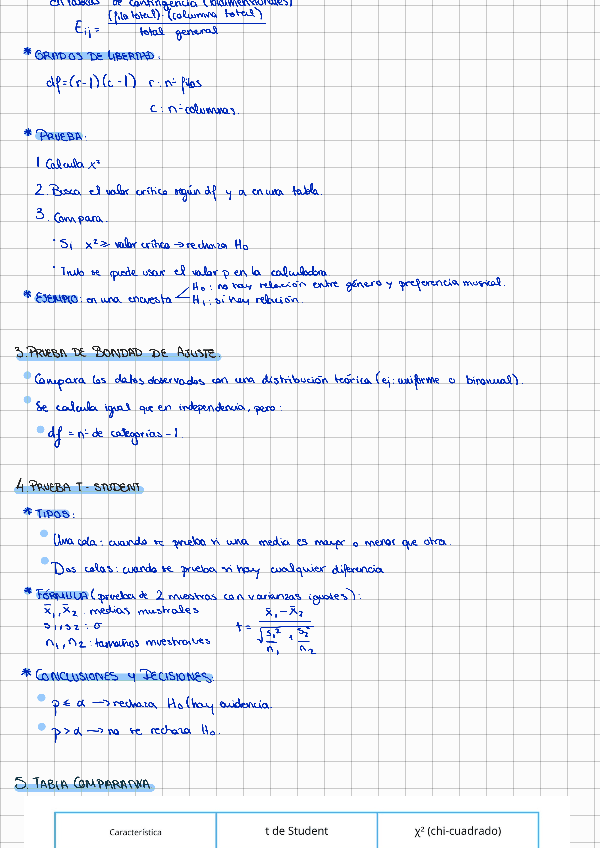 en tablas de contingencia (bidimensionales)
Eij = (fila total)·(columna total) / total general
* GRADOS DE LIBERTAD:
df=(r-1)(c-1) r: nº filas
c: nº columnas.
* PRUEBA:
1 Calcula x²
2. Busca el valor crítico según df y α en una tabla.
3. Compara.
· Si x² ≥ valor crítico → rechaza H0
· Tmb se puede usar el valor p en la calculadora
H0: no hay relación entre género y preferencia musical.
* EJEMPLO: en una encuesta < H1: si hay relación.
3. PRUEBA DE BONDAD DE AJUSTE
Compara los datos observados con una distribución teórica (ej: uniforme o binomial).
Se calcula igual que en independencia, pero:
df = nº de categorías - 1.
4. PRUEBA T-STUDENT
* TIPOS:
Una cola: cuando se prueba si una media es mayor o menor que otra.
Dos colas: cuando se prueba si hay cualquier diferencia
* FÓRMULA (prueba de 2 muestras con varianzas iguales):
x̄1, x̄2: medias muestrales
s1, s2: σ
n1, n2: tamaños muestrales
t = (x̄1 - x̄2) / √(s1²/n1 + s2²/n2)
* CONCLUSIONES Y DECISIONES
p ≤ α → rechaza H0 (hay evidencia.
p > α → no se rechaza H0.
5. TABLA COMPARATIVA
Característica t de Student χ² (chi-cuadrado)